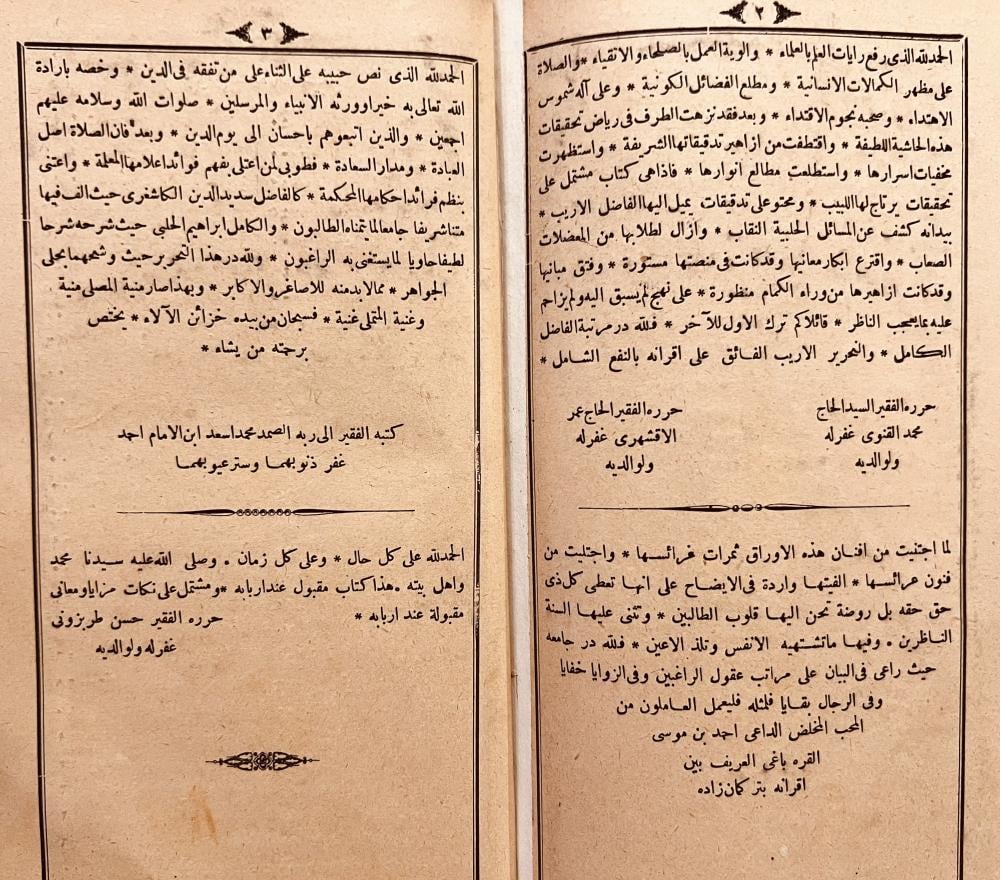 ٢
الحمدلله الذى رفع رايات العلم بالعلماء * والوية العمل بالصلحاء والاتقياء * والصلاة
على مظهر الكمالات الانسانية * ومطلع الفضائل الكونية * وعلى آله شموس
الاهتداء * وصحبه نجوم الاقتداء * وبعد فقد نزهت الطرف فى رياض تحقيقات
هذه الحاشية اللطيفة * واقتطفت من ازاهير تدقيقاتها الشريفة * واستظهرت
مخفيات اسرارها * واستطلعت مطالع انوارها * فاذا هى كتاب مشتمل على
تحقيقات يرتاح لها اللبيب * ومحتو على تدقيقات يميل اليها الفاضل الاريب *
بيد انه كشف عن المسائل الحلبية النقاب * وازال لطلابها من المعضلات
الصعاب * واقترع ابكار معانيها وقد كانت فى منصتها مستورة * وفتق مبانيها
وقد كانت ازاهيرها من وراء الكمام منظورة * على نهج لم يسبق اليه ولم يزاحم
عليه بما يعجب الناظر * قائلا كم ترك الاول للآخر * فلله در مرتبة الفاضل
الكامل * والنحرير الاريب الفائق على اقرانه بالنفع الشامل *
حرره الفقير السيد الحاج
محمد القنوى غفرله
ولوالديه
حرره الفقير الحاج عمر
الاقشهرى غفرله
ولوالديه
لما اجتنيت من افنان هذه الاوراق ثمرات غرائسها * واجتليت من
فنون عرائسها * الفيتها واردة فى الايضاح على انها تعطى كل ذى
حق حقه بل روضة تحن اليها قلوب الطالبين * وتثنى عليها السنة
الناظرين . وفيها ماتشتهيه الانفس وتلذ الاعين * فلله در جامعه
حيث راعى فى البيان على مراتب عقول الراغبين وفى الزوايا خفايا
وفى الرجال بقايا فلمثله فليعمل العاملون من
المحب المخلص الداعى احمد بن موسى
القره باغى العريف بين
اقرانه بتركمان زاده
٣
الحمدلله الذى نص حبيبه على الثناء على من تفقه فى الدين * وخصه بارادة
الله تعالى به خيرا وورثه الانبياء والمرسلين * صلوات الله وسلامه عليهم
اجمعين * والذين اتبعوهم باحسان الى يوم الدين * وبعد فان الصلاة اصل
العبادة * ومدار السعادة * فطوبى لمن اعتلى بفهم فوائد اعلامها المعلمة * واعتنى
بنظم فرائد احكامها المحكمة * كالفاضل سديد الدين الكاشغرى حيث الف فيها
متنا شريفا جامعا لما يتمناه الطالبون * والكامل ابراهيم الحلبى حيث شرحه شرحا
لطيفا حاويا لما يستغنى به الراغبون * ولله در هذا النحرير حيث وشحهما بحلى
الجواهر * مما لابد منه للاصاغر والاكابر * وبهذا صار منية المصلى منية
وغنية المتملى غنية * فسبحان من بيده خزائن الآلاء * يختص
برحمته من يشاء *
كتبه الفقير الى ربه الصمد محمد اسعد ابن الامام احمد
غفر ذنوبهما وستر عيوبهما
الحمدلله على كل حال * وعلى كل زمان . وصلى الله عليه سيدنا محمد
واهل بيته . هذا كتاب مقبول عند اربابه * ومشتمل على نكات مزايا ومعانى
مقبولة عند اربابه * حرره الفقير حسن طربزونى
غفرله ولوالديه